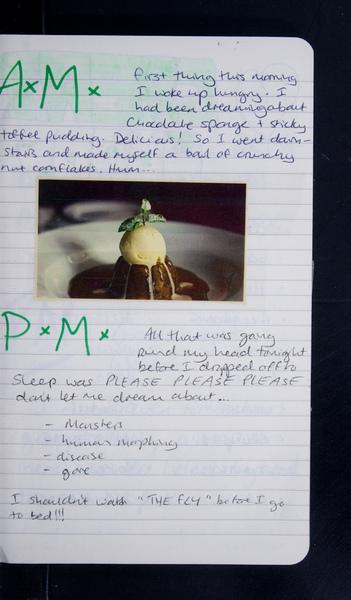 A×M×
first thing this morning
I woke up hungry. I
had been dreaming about
Chocolate sponge + sticky
toffee pudding. Delicious! So I went down-
stairs and made myself a bowl of crunchy
nut cornflakes. Hum...
P×M×
All that was going
round my head tonight
before I dropped off to
Sleep was PLEASE PLEASE PLEASE
don't let me dream about...
- Monsters
- human morphing
- disease
- gore
I shouldn't watch "THE FLY" before I go
to bed!!!